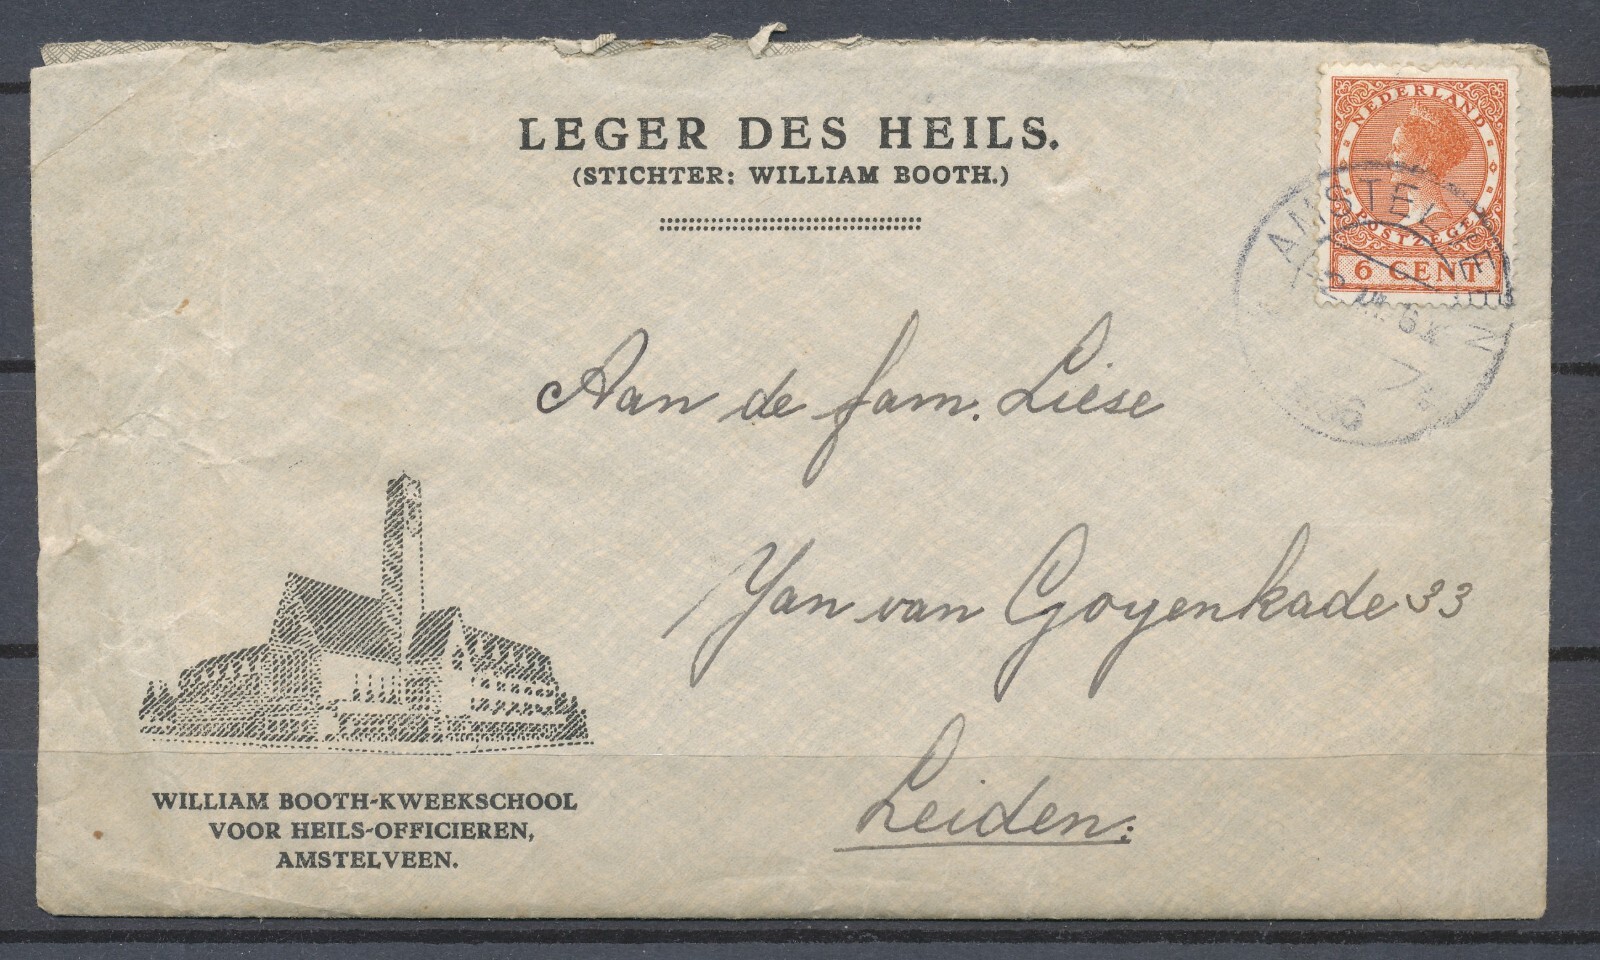 LEGER DES HEILS.
(STICHTER: WILLIAM BOOTH.)
NEDERLAND
POSTZEGEL
6 CENT
AMSTELVEEN
Aan de fam. Liese
Jan van Goyenkade 33
Leiden:
WILLIAM BOOTH-KWEEKSCHOOL
VOOR HEILS-OFFICIEREN,
AMSTELVEEN.